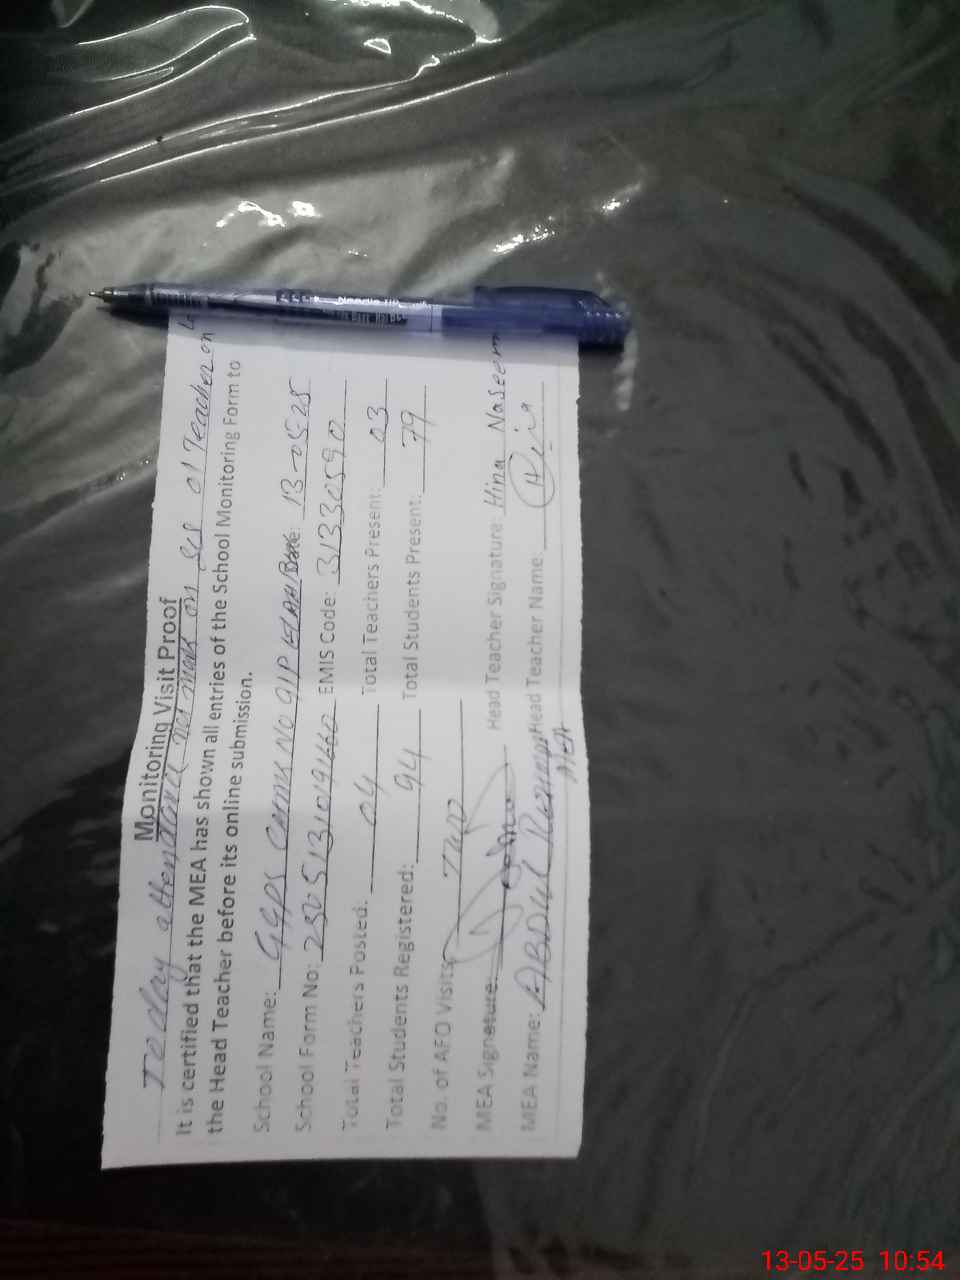 Monitoring Visit Proof
Today attendance not mark on SIS 01 Teacher on
It is certified that the MEA has shown all entries of the School Monitoring Form to
the Head Teacher before its online submission.
School Name: GGPS Comm No 91P Date: 13-05-25
School Form No: EMIS Code: 31330590
Total Teachers Posted: 04 Total Teachers Present: 03
Total Students Registered: 94 Total Students Present: 79
No. of AFO Visits: Two
MEA Signature: Head Teacher Signature: Hina Naseem
MEA Name: ABDUL Rehman Head Teacher Name:
MEA
Needle Tip
13-05-25 10:54